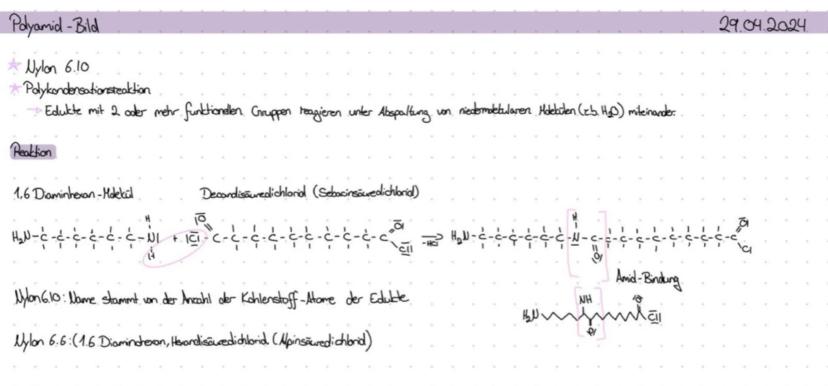 Polyamid-Bild 29.04.2024
Nylon 6.10
Polykondensationsreaktion
→ Edukte mit 2 oder mehr funktionellen Gruppen reagieren unter Abspaltung von niedermolekularen Molekülen (z.b. H₂O) miteinander.
Reaktion
1.6 Diaminhexan-Molekül Decandisäuredichlorid (Sebacinsäuredichlorid)
H₂N-C-C-C-C-C-C-NI + ICl-C-C-C-C-C-C-C-C-C-C ⇌ -HCl H₂N-C-C-C-C-C-C-N-C-C-C-C-C-C-C-C-C-C
H H O O Cl H O O Cl
Amid-Bindung
Nylon 6.10: Name stammt von der Anzahl der Kohlenstoff-Atome der Edukte
H₂N NH O O Cl
Nylon 6.6: (1.6 Diaminohexan, Hexandisäuredichlorid (Alpinsäuredichlorid)